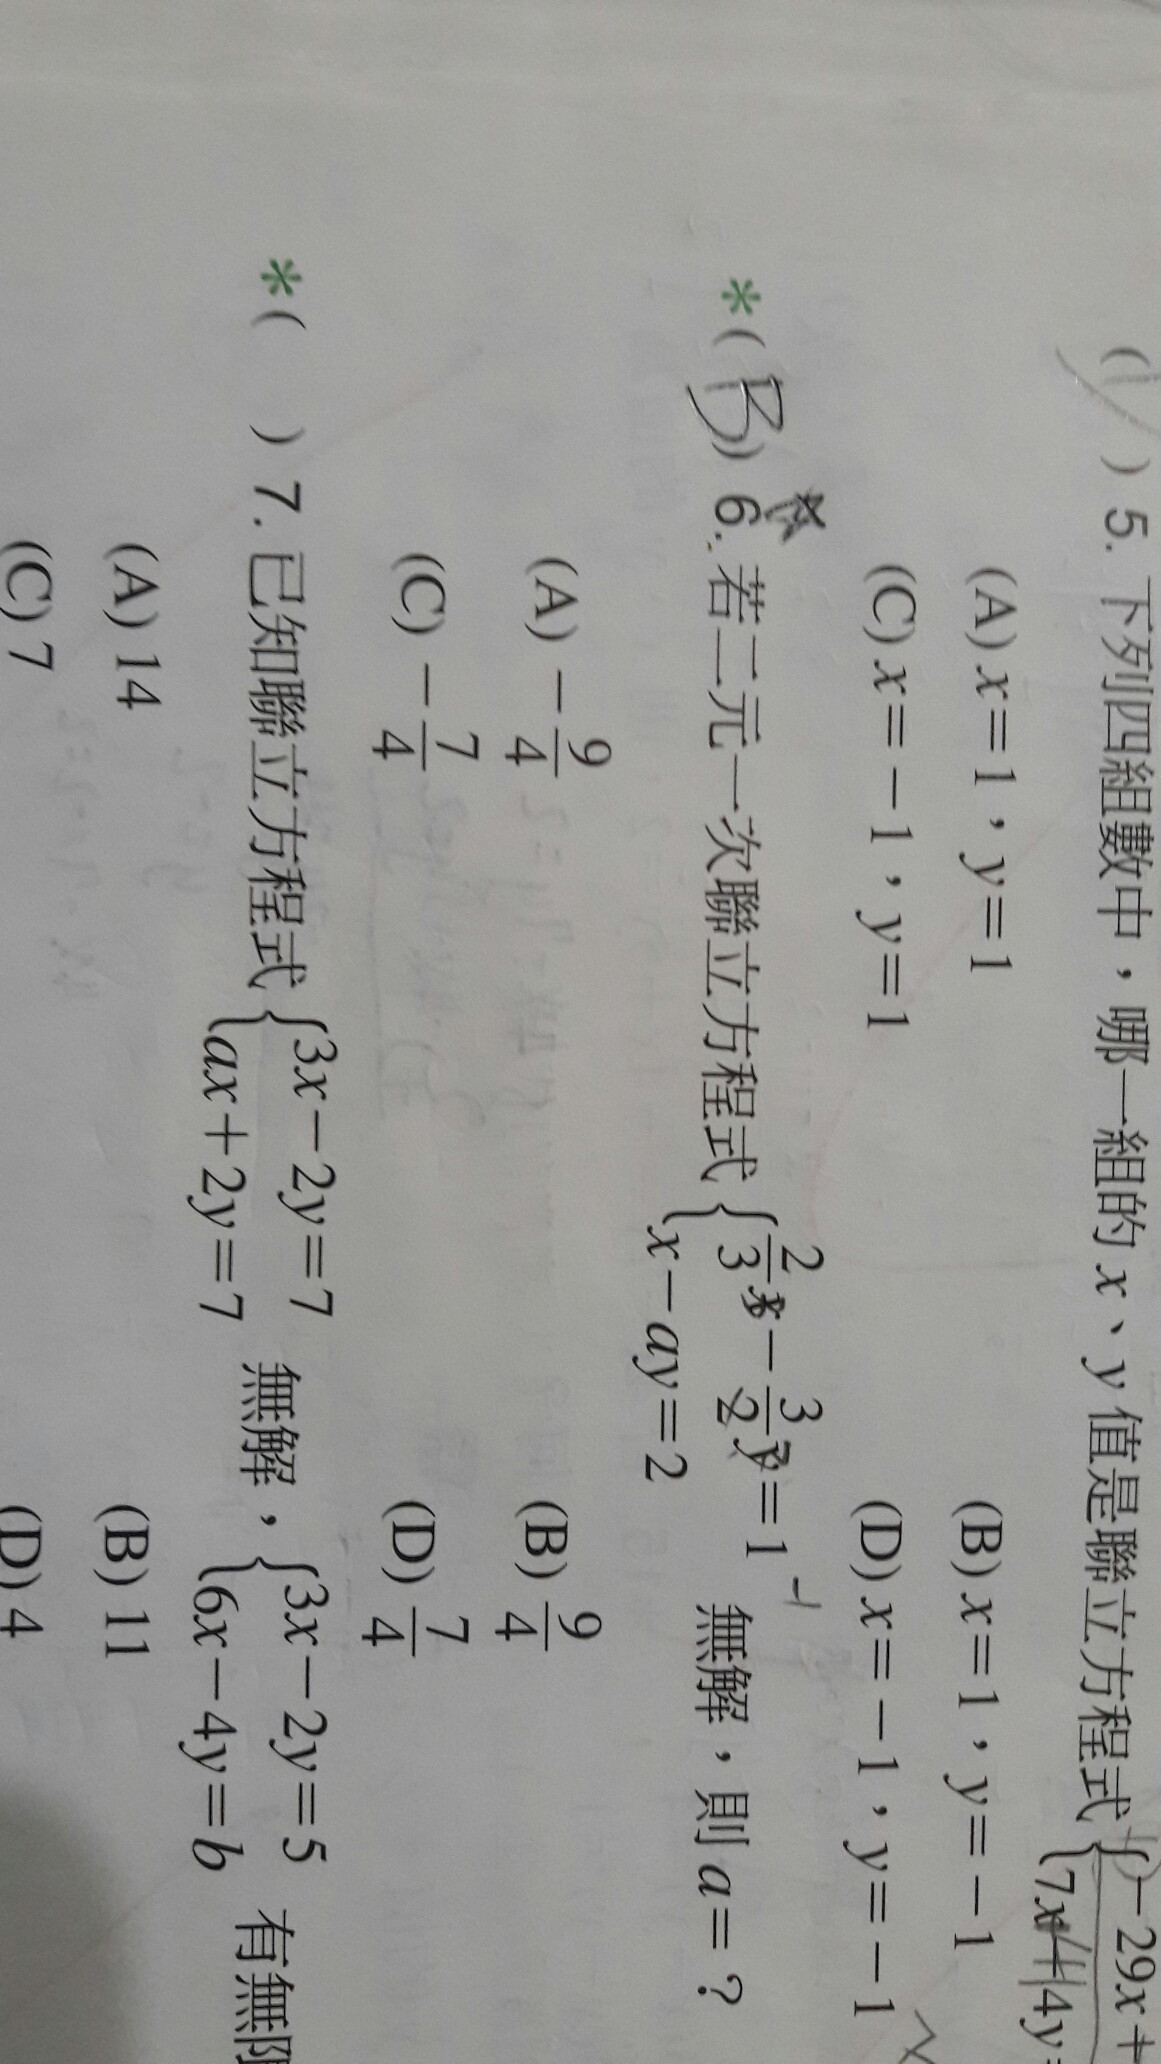 ( ) 5. 下列四組數中，哪一組的 x、y 值是聯立方程式 { -29x+
7x+14y=
(A) x=1，y=1 (B) x=1，y=-1
(C) x=-1，y=1 (D) x=-1，y=-1
*( B ) 6. 若二元一次聯立方程式 { 2/3 x - 3/2 y = 1 無解，則 a=？
x-ay=2
(A) -9/4 (B) 9/4
(C) -7/4 (D) 7/4
*( ) 7. 已知聯立方程式 { 3x-2y=7 無解， { 3x-2y=5 有無限
ax+2y=7 6x-4y=b
(A) 14 (B) 11
(C) 7 (D) 4